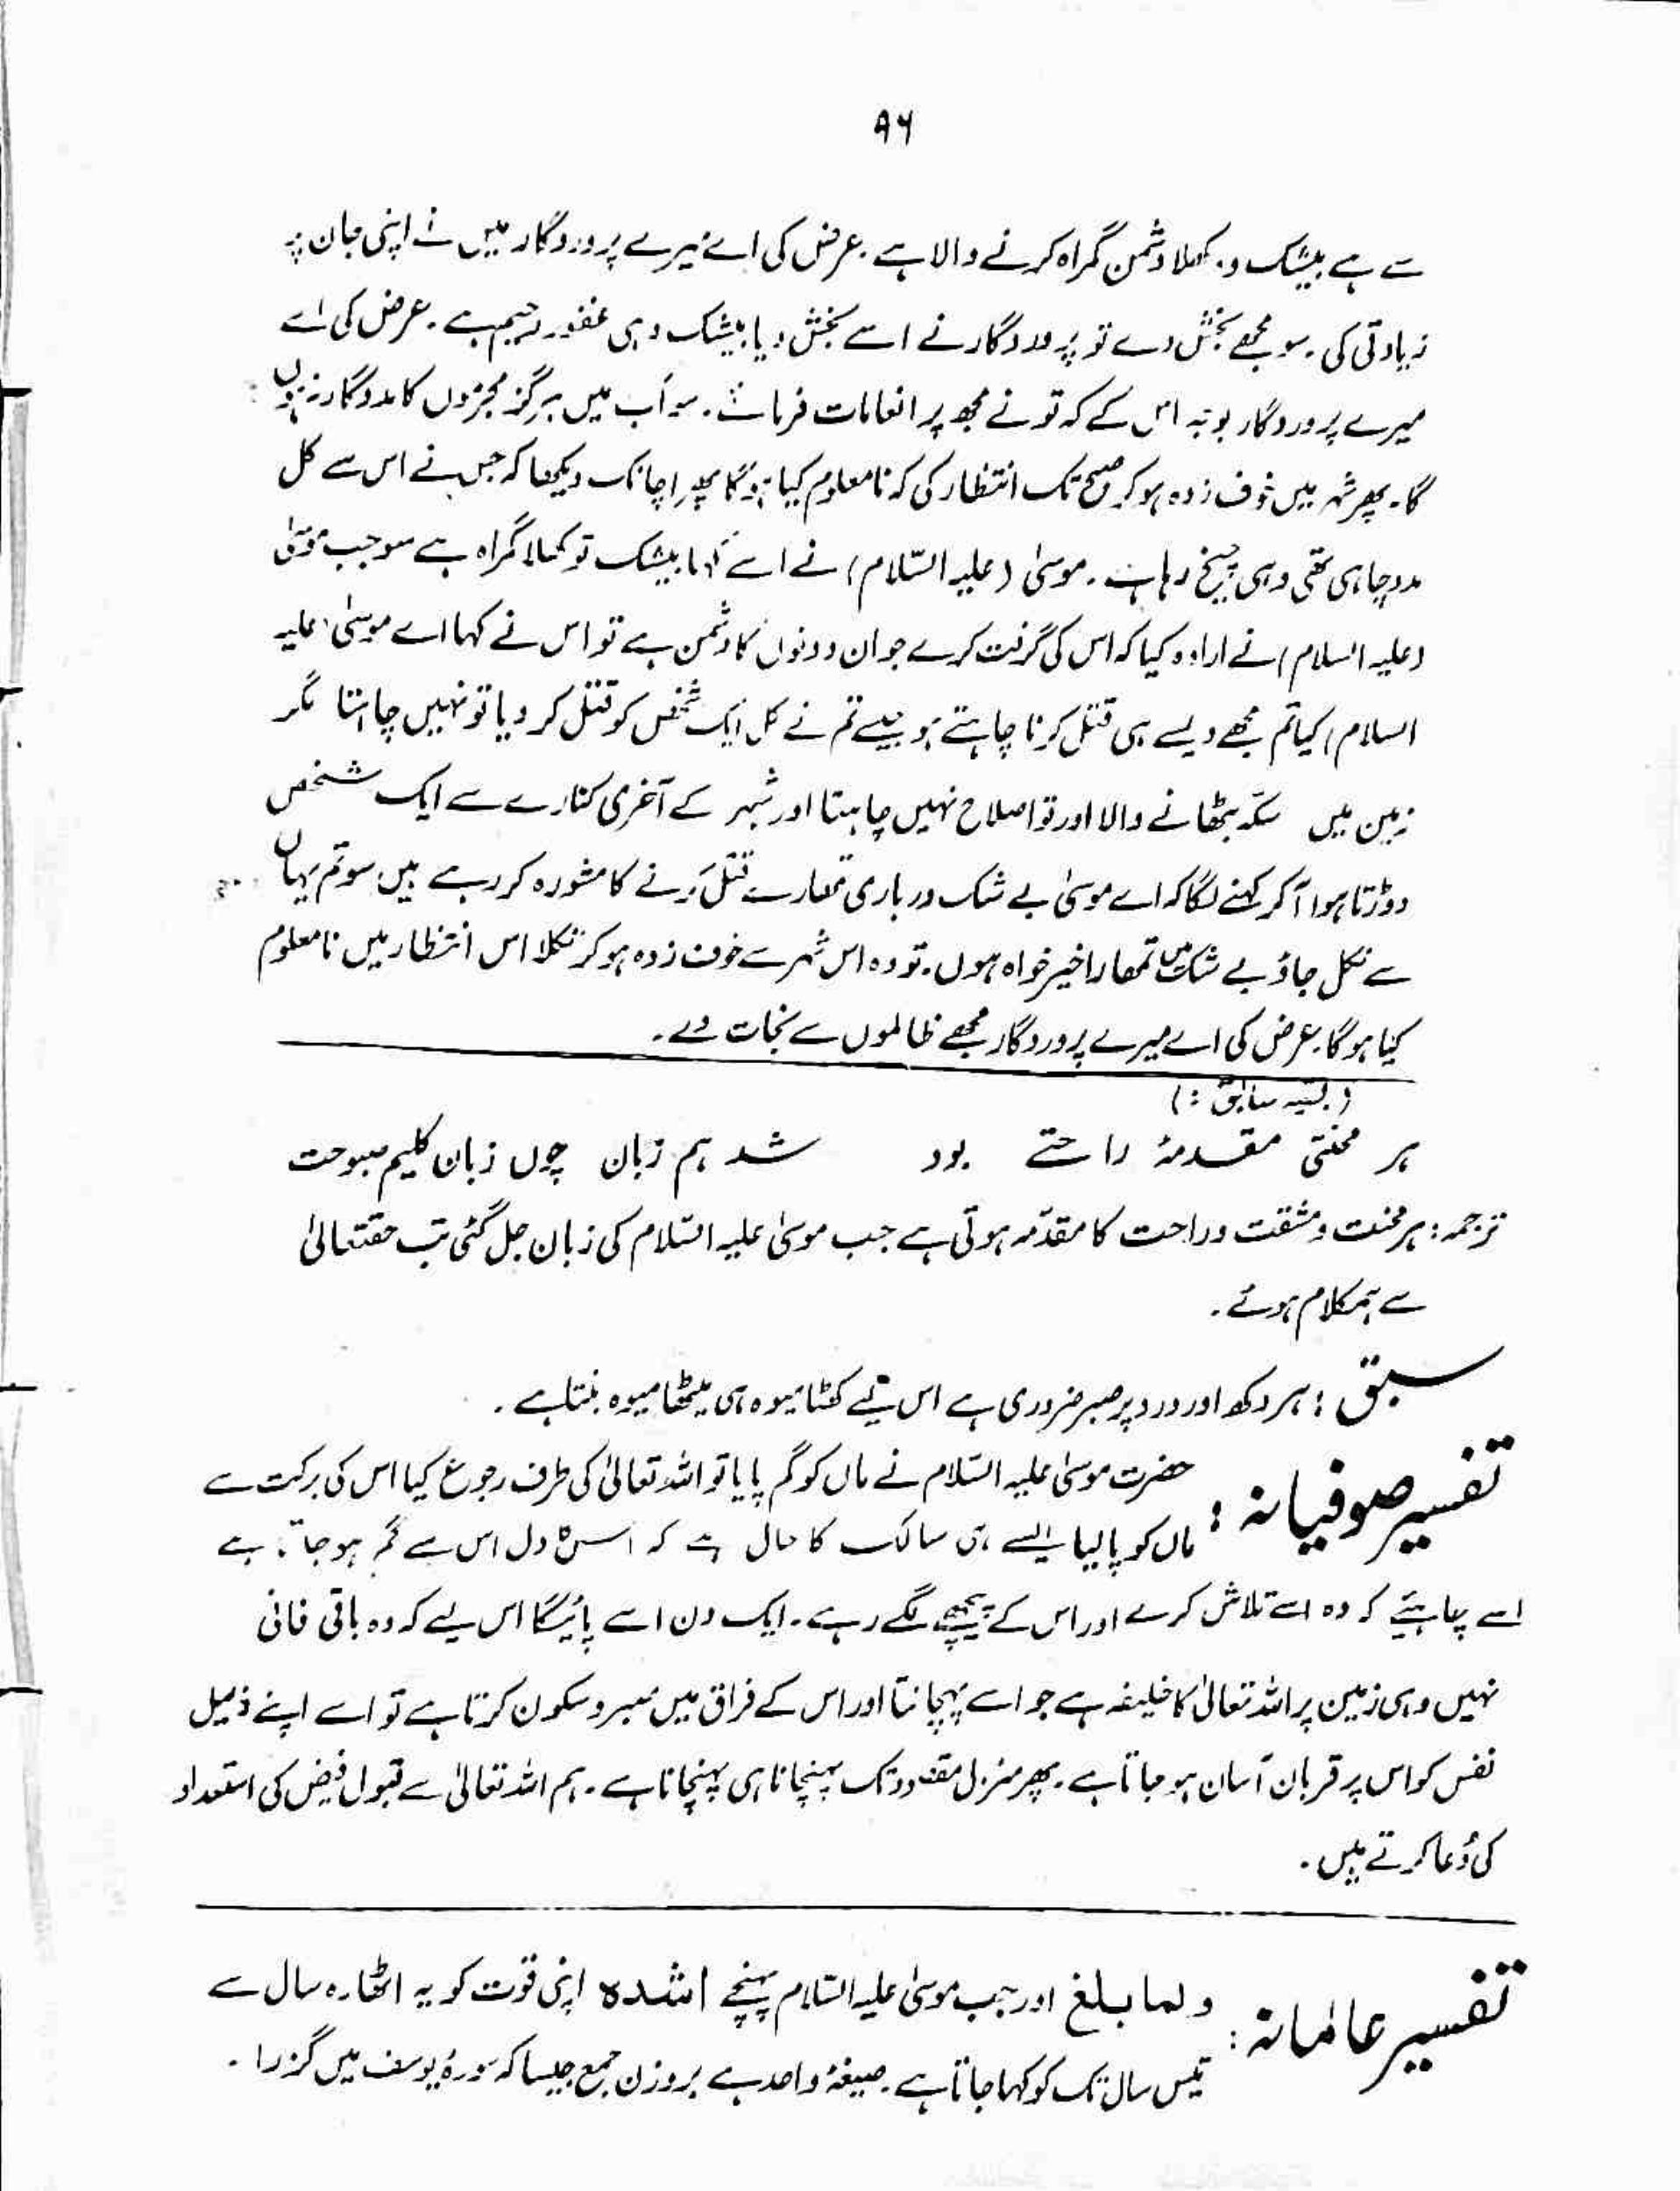 ۹۶
سے ہے بیشک وہ کھلا دشمن گمراہ کرنے والا ہے۔ عرض کی اے میرے پروردگار میں نے اپنی جان پر
زیادتی کی۔ سو مجھے بخش دے تو پروردگار نے اسے بخش دیا بیشک وہی غفور رحیم ہے۔ عرض کی اے
میرے پروردگار بوجہ اس کے کہ تو نے مجھ پر انعامات فرمائے۔ سو اب میں ہرگز مجرموں کا مددگار نہ ہوں
گا۔ پھر شہر میں خوف زدہ ہو کر صبح تک انتظار کی کہ نامعلوم کیا ہوگا پھر اچانک دیکھا کہ جس نے اس سے کل
مدد چاہی تھی وہی چیخ رہا ہے۔ موسیٰ (علیہ السّلام) نے اسے کہا بیشک تو کھلا گمراہ ہے سو جب موسیٰ
(علیہ السلام) نے ارادہ کیا کہ اس کی گرفت کرے جو ان دونوں کا دشمن ہے تو اس نے کہا اے موسیٰ (علیہ
السلام) کیا تم مجھے ویسے ہی قتل کرنا چاہتے ہو جیسے تم نے کل ایک شخص کو قتل کر دیا تو نہیں چاہتا مگر
زمین میں سکّہ بٹھانے والا اور تو اصلاح نہیں چاہتا اور شہر کے آخری کنارے سے ایک شخص
دوڑتا ہوا آ کر کہنے لگا کہ اے موسیٰ بے شک درباری تمھارے قتل کرنے کا مشورہ کر رہے ہیں سو تم یہاں
سے نکل جاؤ بے شک میں تمھارا خیر خواہ ہوں۔ تو وہ اس شہر سے خوف زدہ ہو کر نکلا اس انتظار میں نامعلوم
کیا ہوگا۔ عرض کی اے میرے پروردگار مجھے ظالموں سے نجات دے۔
(بقیہ سابق :)
ہر محنتی مقدمۂ راحتے بود شد ہم زبان چوں زبان کلیم سوخت
ترجمہ: ہر محنت و مشقت و راحت کا مقدّمہ ہوتی ہے جب موسیٰ علیہ السّلام کی زبان جل گئی تب حقتعالیٰ
سے ہمکلام ہوئے۔
سبق : ہر دکھ اور درد پر صبر ضروری ہے اس لیے کھٹا میوہ ہی میٹھا میوہ بنتا ہے۔
تفسیر صوفیانہ : حضرت موسیٰ علیہ السّلام نے ماں کو گم پایا تو اللہ تعالیٰ کی طرف رجوع کیا اس کی برکت سے
ماں کو پا لیا ایسے ہی سالک کا حال ہے کہ اس کا دل اس سے گم ہو جاتا ہے
اسے چاہیئے کہ وہ اسے تلاش کرے اور اس کے پیچھے لگے رہے۔ ایک دن اسے پائیگا اس لیے کہ وہ باقی فانی
نہیں وہی زمین پر اللہ تعالیٰ کا خلیفہ ہے جو اسے پہچانتا اور اس کے فراق میں صبر و سکون کرتا ہے تو اسے اپنے ذلیل
نفس کو اس پر قربان آسان ہو جاتا ہے۔ پھر منزل مقصود تک پہنچانا ہی پہنچانا ہے۔ ہم اللہ تعالیٰ سے قبول فیض کی استعداد
کی دُعا کرتے ہیں۔
تفسیر عالمانہ : ولما بلغ اور جب موسیٰ علیہ السّلام پہنچے اشدہ اپنی قوت کو یہ اٹھارہ سال سے
تیس سال تک کو کہا جاتا ہے۔ صیغۂ واحد ہے بروزن جمع جیسا کہ سورۂ یوسف میں گزرا۔